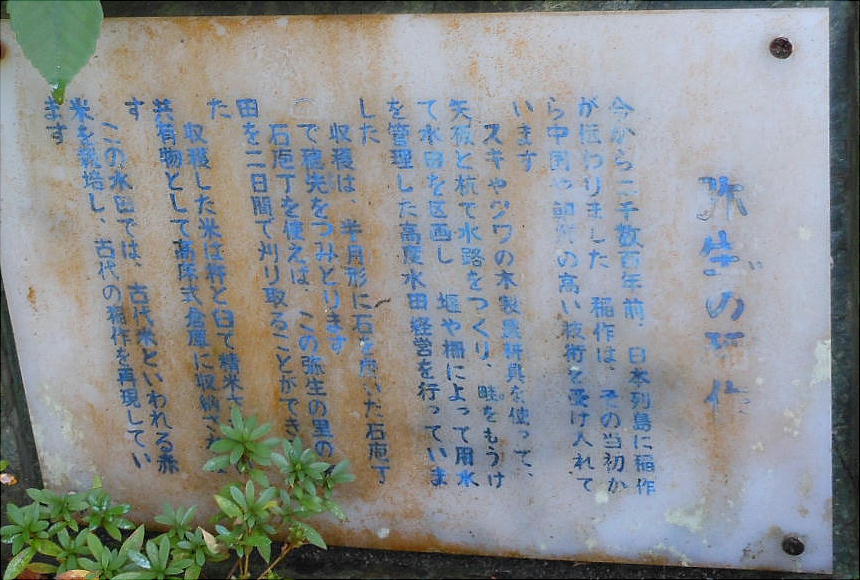 弥生の稲作
今から二千数百年前、日本列島に稲作
が伝わりました 稲作は、その当初か
ら中国や朝鮮の高い技術を受け入れて
います
スキやクワの木製農耕具を使って、
矢板と杭で水路をつくり、畦をもうけ
て水田を区画し 堰や柵によって用水
を管理した高度水田経営を行っていま
した
収穫は、半月形に石を磨いた石庖丁
で穂先をつみとります
石庖丁を使えば、この弥生の里の
田を二日間で刈り取ることができ
た
収穫した米は杵と臼で精米さ
共有物として高床式倉庫に収納され
す
この水田では、古代米といわれる赤
米を栽培し、古代の稲作を再現してい
ます